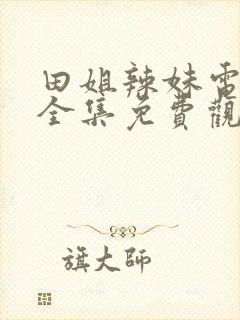 田姐辣妹電
全集免費觀
旗大師